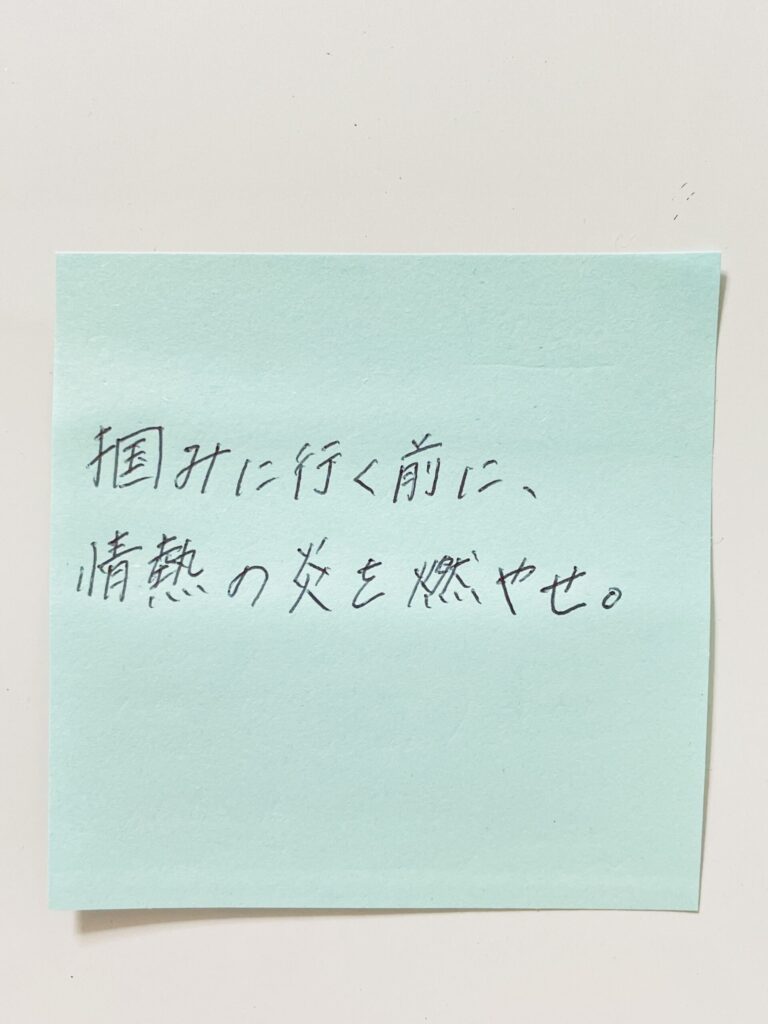 掴みに行く前に、
情熱の炎を燃やせ。